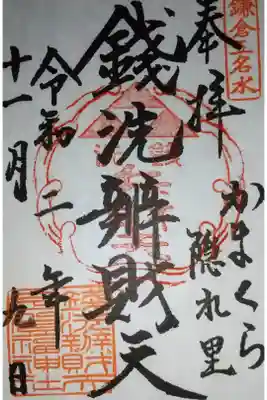 鎌倉五名水
奉拝
かまくら
隠れ里
銭洗辨財天
令和二年
十一月九日